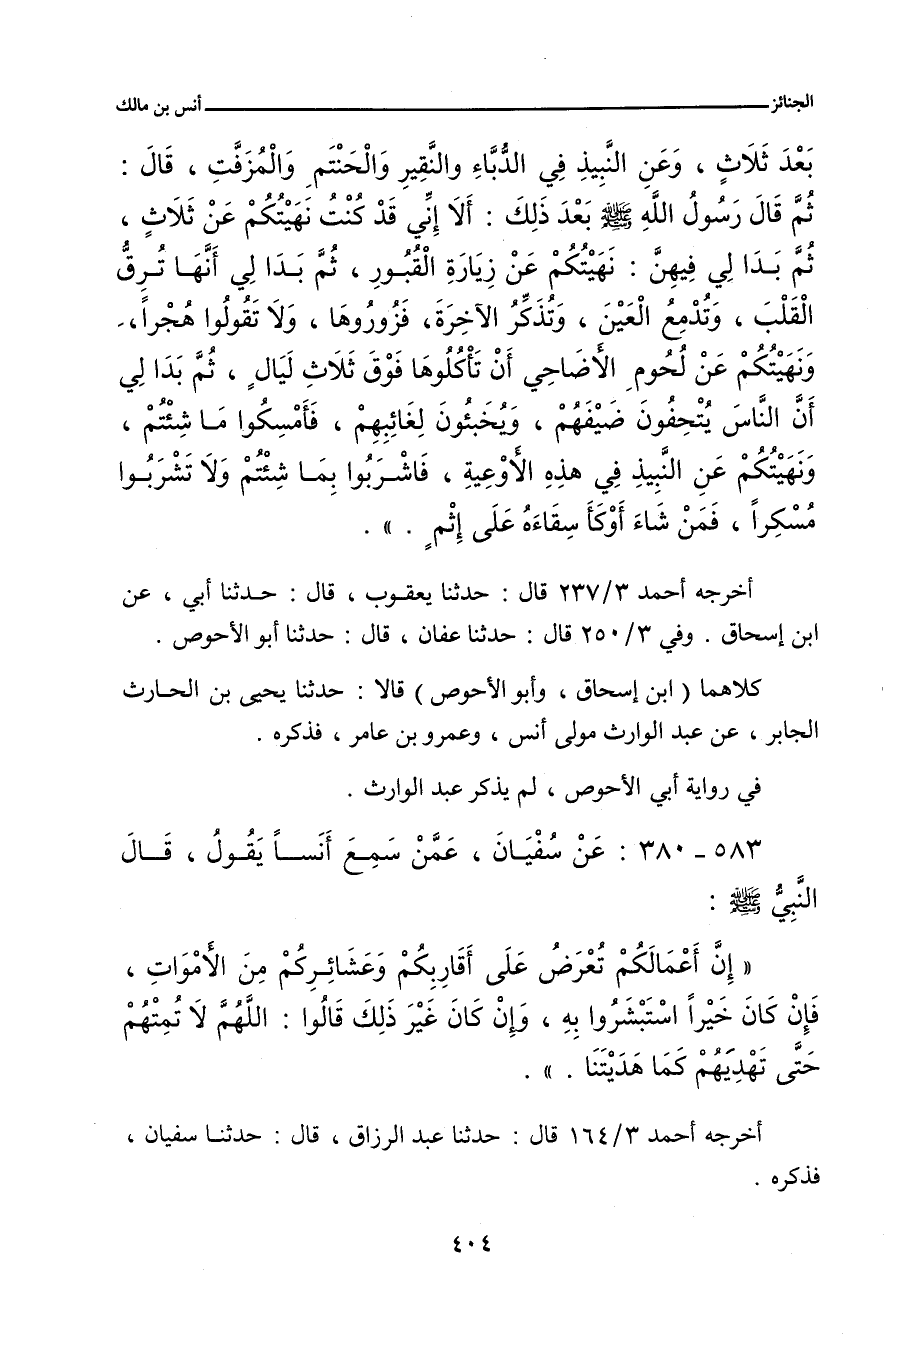 الجنائز ــــــــــــــــ أنس بن مالك
بَعْدَ ثَلَاثٍ ، وَعَنِ النَّبِيذِ فِي الدُّبَّاءِ والنَّقِيرِ وَالْحَنْتَمِ وَالْمُزَفَّتِ ، قَالَ :
ثُمَّ قَالَ رَسُولُ اللَّهِ ﷺ بَعْدَ ذَلِكَ : أَلَا إِنِّي قَدْ كُنْتُ نَهَيْتُكُمْ عَنْ ثَلَاثٍ ،
ثُمَّ بَدَا لِي فِيهِنَّ : نَهَيْتُكُمْ عَنْ زِيَارَةِ الْقُبُورِ ، ثُمَّ بَدَا لِي أَنَّهَا تُرِقُّ
الْقَلْبَ ، وَتُدْمِعُ الْعَيْنَ ، وَتُذَكِّرُ الآخِرَةَ، فَزُورُوهَا ، وَلَا تَقُولُوا هُجْراً،
وَنَهَيْتُكُمْ عَنْ لُحُومِ الأَضَاحِي أَنْ تَأْكُلُوهَا فَوْقَ ثَلَاثِ لَيَالٍ ، ثُمَّ بَدَا لِي
أَنَّ النَّاسَ يُتْحِفُونَ ضَيْفَهُمْ ، وَيُخَبِّئُونَ لِغَائِبِهِمْ ، فَأَمْسِكُوا مَا شِئْتُمْ ،
وَنَهَيْتُكُمْ عَنِ النَّبِيذِ فِي هذِهِ الأَوْعِيةِ ، فَاشْرَبُوا بِمَا شِئْتُمْ وَلَا تَشْرَبُوا
مُسْكِراً ، فَمَنْ شَاءَ أَوْكَأَ سِقَاءَهُ عَلَى إِثْمٍ . » .
أخرجه أحمد ٢٣٧/٣ قال : حدثنا يعقوب ، قال : حدثنا أبي ، عن
ابن إسحاق . وفي ٢٥٠/٣ قال : حدثنا عفان ، قال : حدثنا أبو الأحوص .
كلاهما ( ابن إسحاق ، وأبو الأحوص ) قالا : حدثنا يحيى بن الحارث
الجابر ، عن عبد الوارث مولى أنس ، وعمرو بن عامر ، فذكره .
في رواية أبي الأحوص ، لم يذكر عبد الوارث .
٥٨٣ ـ ٣٨٠ : عَنْ سُفْيَانَ ، عَمَّنْ سَمِعَ أَنَساً يَقُولُ ، قَالَ
النَّبِيُّ ﷺ :
« إِنَّ أَعْمَالَكُمْ تُعْرَضُ عَلَى أَقَارِبِكُمْ وَعَشَائِرِكُمْ مِنَ الأَمْوَاتِ ،
فَإِنْ كَانَ خَيْراً اسْتَبْشَرُوا بِهِ ، وَإِنْ كَانَ غَيْرَ ذَلِكَ قَالُوا : اللَّهُمَّ لَا تُمِتْهُمْ
حَتَّى تَهْدِيَهُمْ كَمَا هَدَيْتَنَا . » .
أخرجه أحمد ١٦٤/٣ قال : حدثنا عبد الرزاق ، قال : حدثنا سفيان ،
فذكره .
٤٠٤